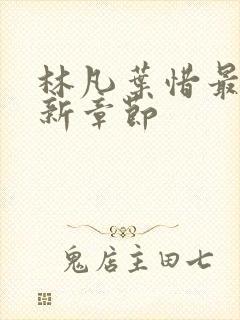 林凡葉惜最
新章節
鬼店主田七